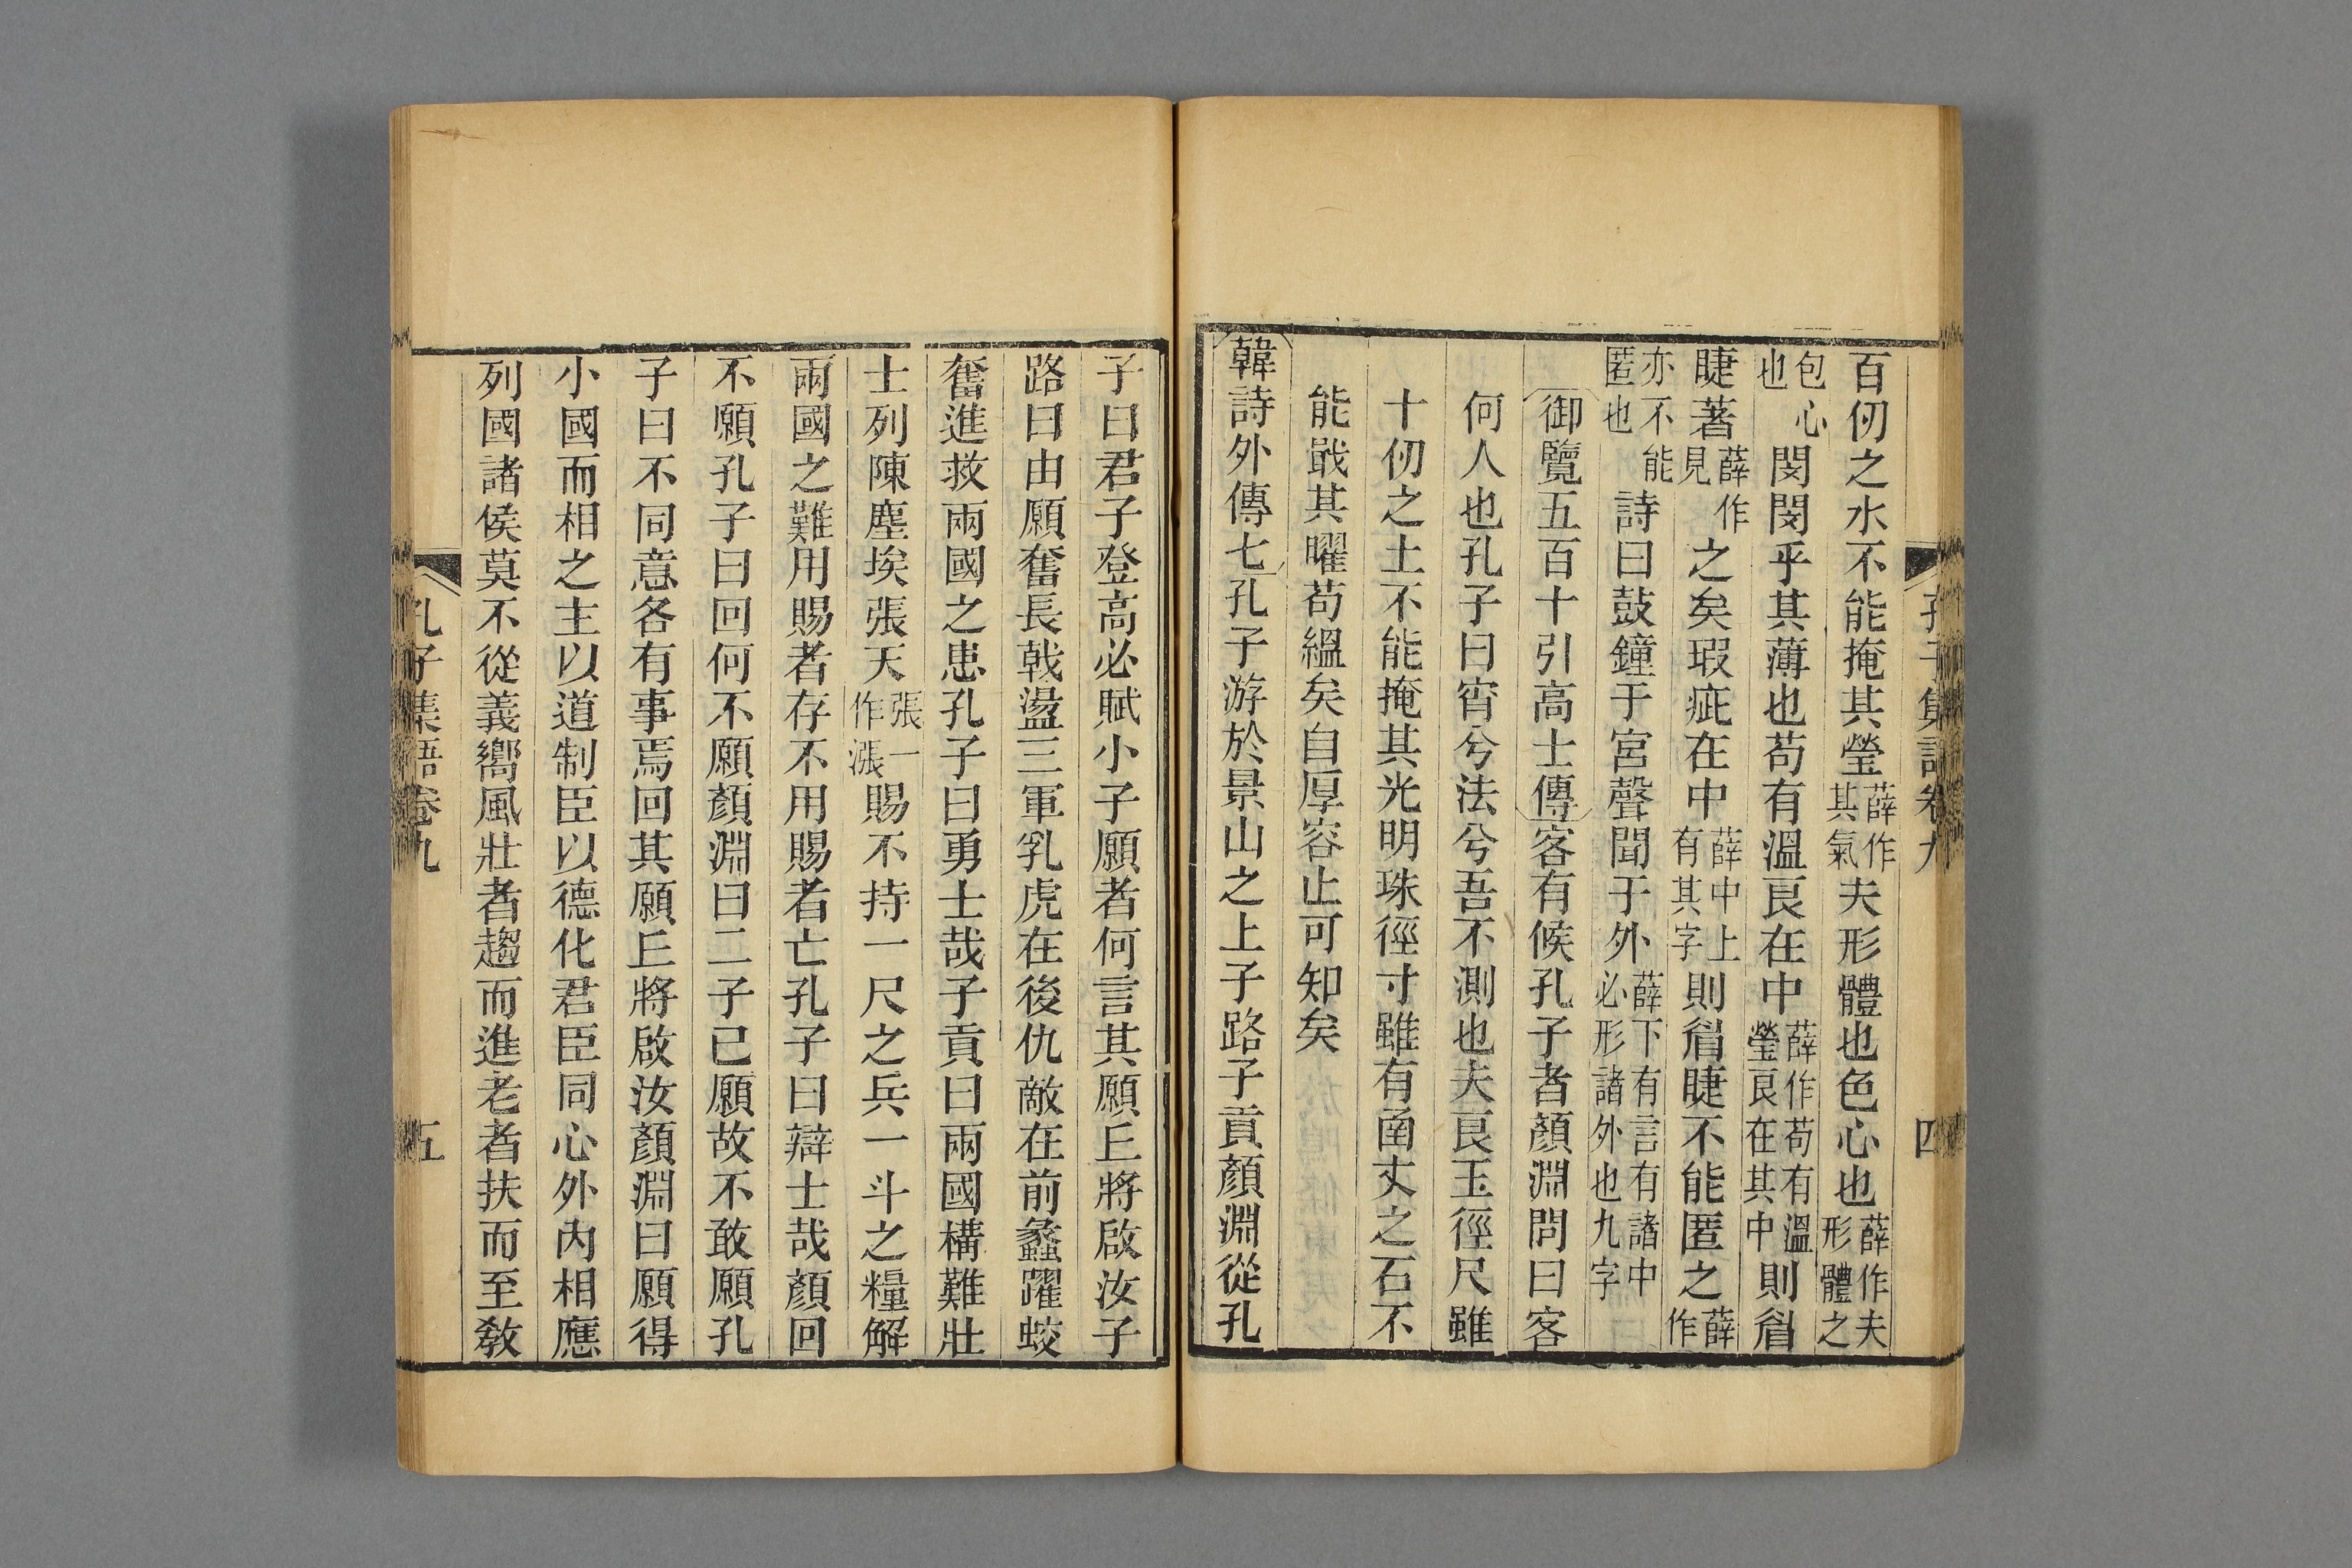 孔子集語卷九 四
百仞之水不能掩其瑩薛作其氣夫形體也色心也薛作夫形體之
包心也閔閔乎其薄也苟有溫良在中薛作苟有溫瑩良在其中則眉
睫著薛作見之矣瑕疵在中薛中上有其字則眉睫不能匿之薛作
亦不能匿也詩曰鼓鐘于宮聲聞于外薛下有言有諸中必形諸外也九字
御覽五百十引高士傳客有候孔子者顏淵問曰客
何人也孔子曰宵兮法兮吾不測也夫良玉徑尺雖
十仞之土不能掩其光明珠徑寸雖有函丈之石不
能戢其曜苟縕矣自厚容止可知矣
韓詩外傳七孔子游於景山之上子路子貢顏淵從孔
子曰君子登高必賦小子願者何言其願丘將啟汝子
路曰由願奮長戟盪三軍乳虎在後仇敵在前蠡躍蛟
奮進救兩國之患孔子曰勇士哉子貢曰兩國構難壯
士列陳塵埃張天張一作漲賜不持一尺之兵一斗之糧解
兩國之難用賜者存不用賜者亡孔子曰辯士哉顏回
不願孔子曰回何不願顏淵曰二子已願故不敢願孔
子曰不同意各有事焉回其願丘將啟汝顏淵曰願得
小國而相之主以道制臣以德化君臣同心外內相應
列國諸侯莫不從義嚮風壯者趨而進老者扶而至教
孔子集語卷九 五